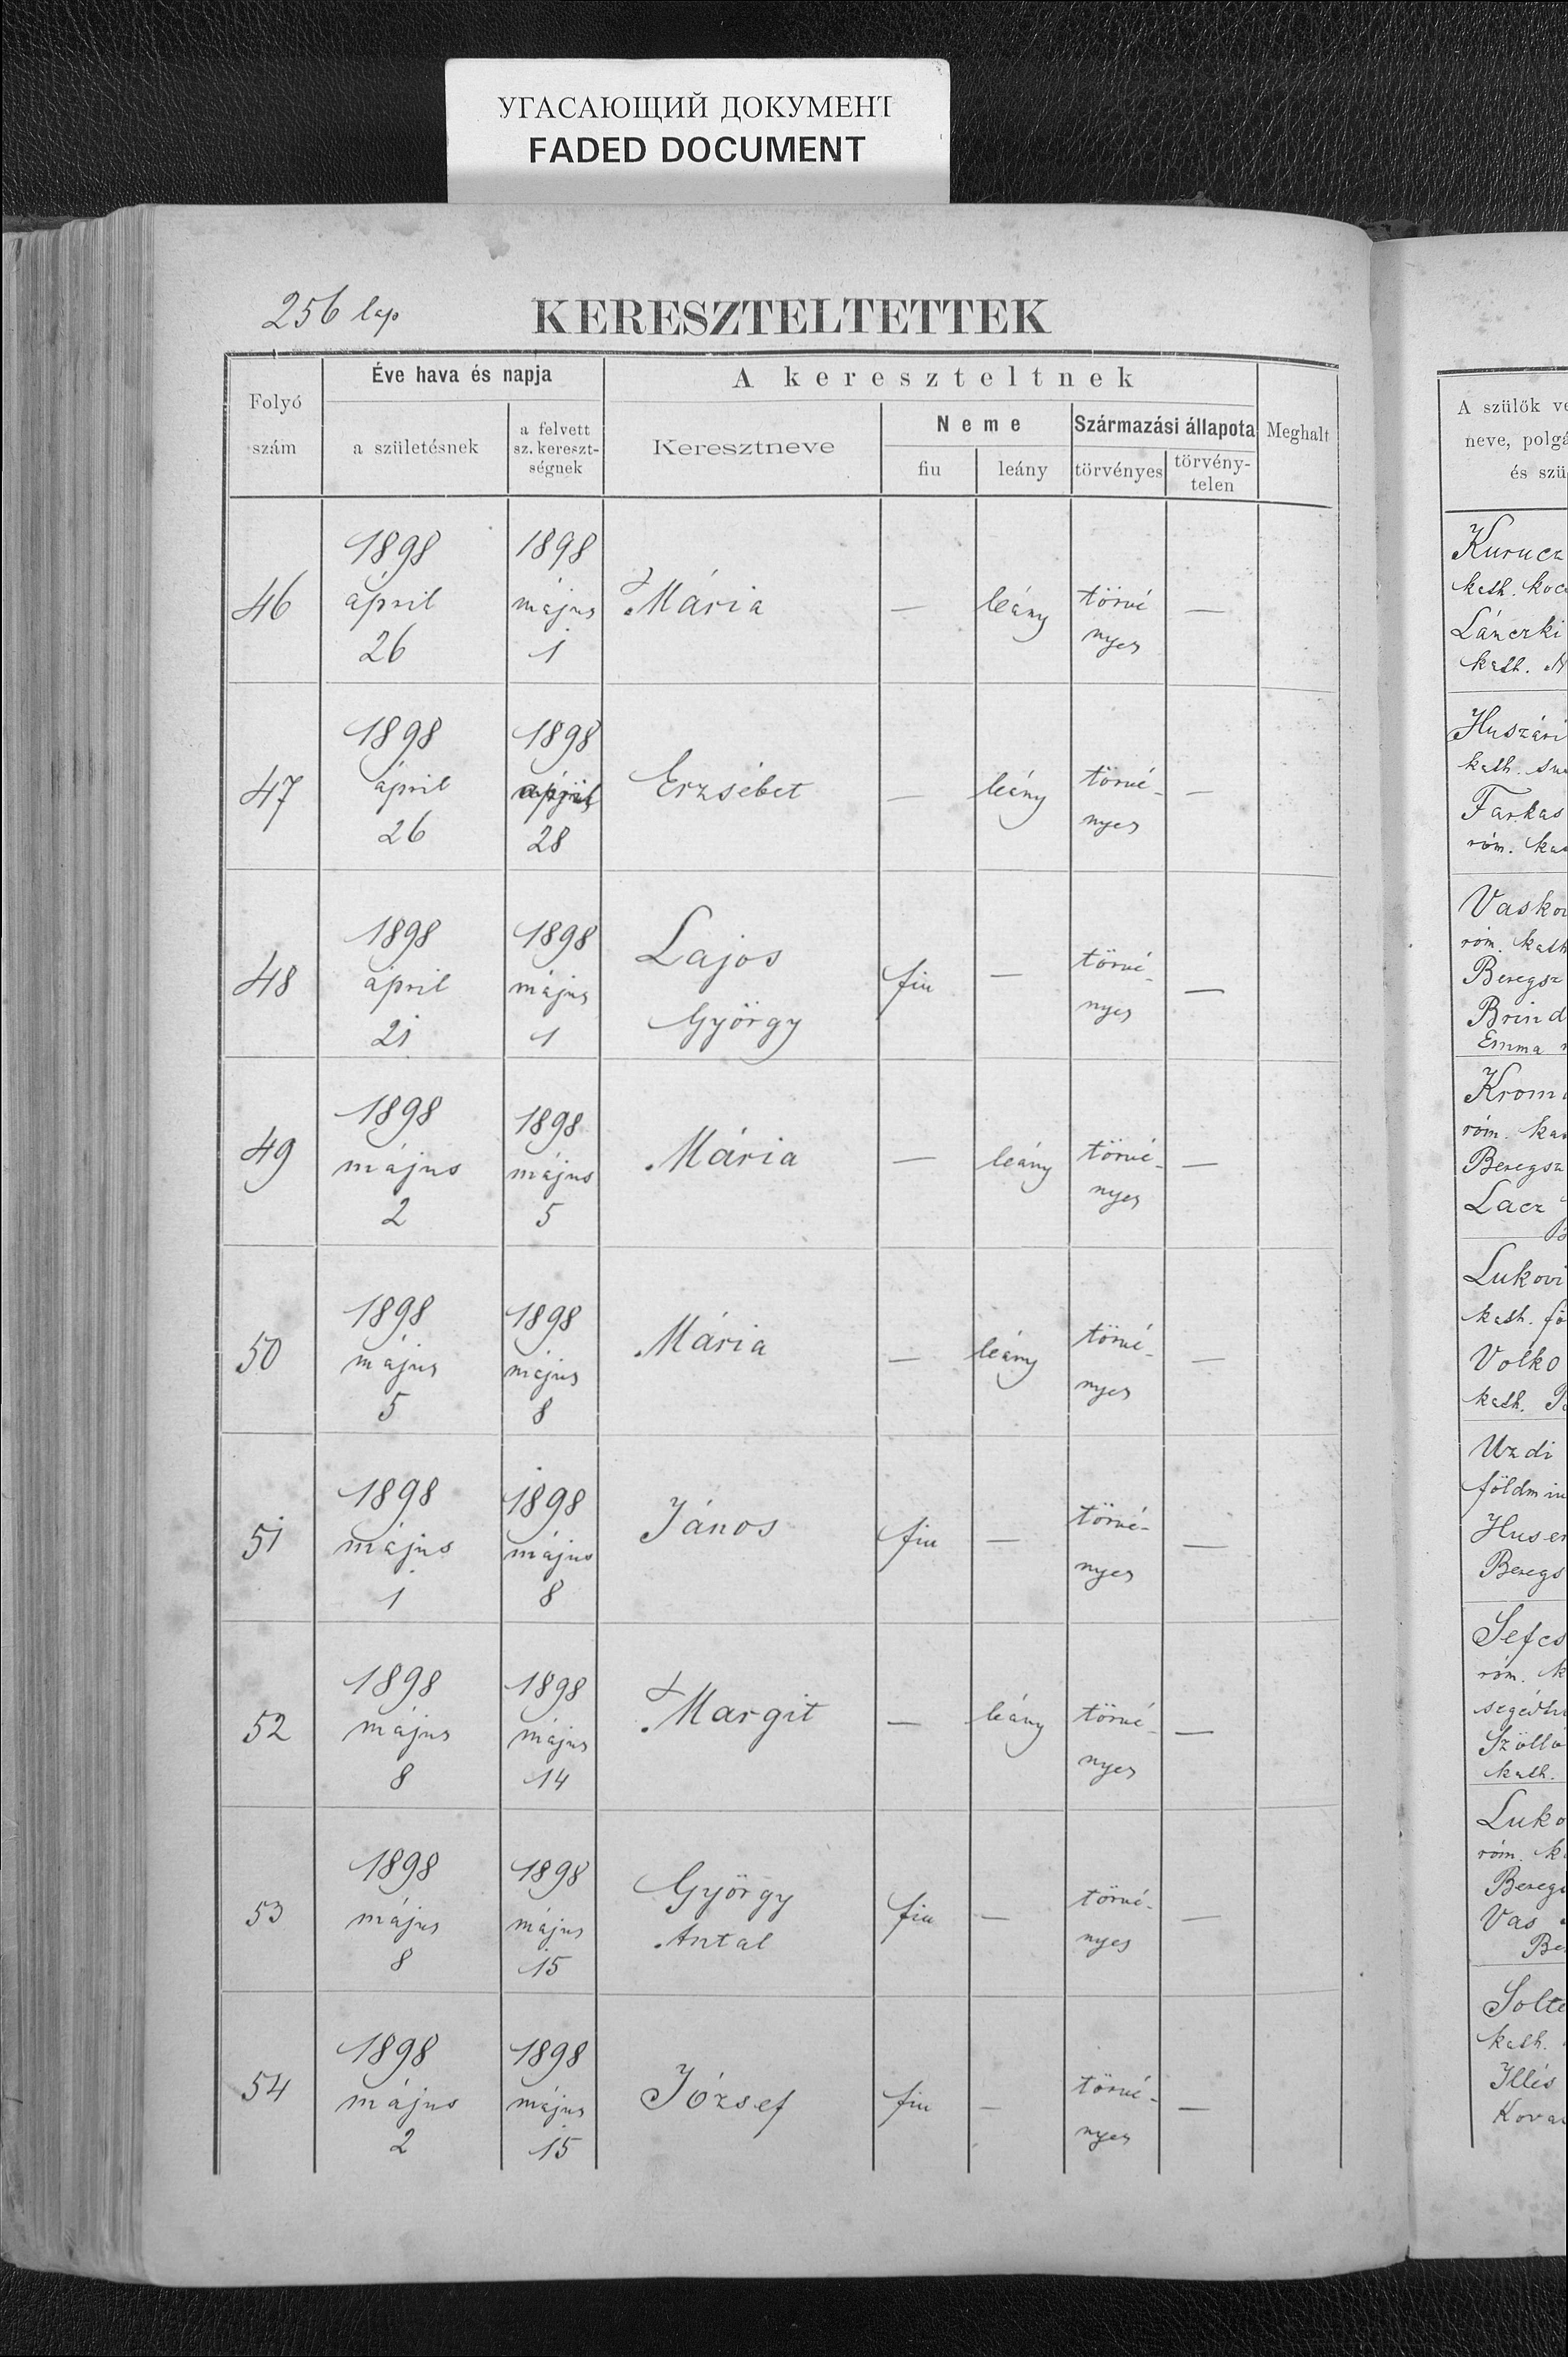 УГАСАЮЩИЙ ДОКУМЕНТ
FADED DOCUMENT
256 lap
KERESZTELTETTEK
Folyó szám
Éve hava és napja
a születésnek
a felvett sz. kereszt-ségnek
A kereszteltnek
Keresztneve
Neme
fiu
leány
Származási állapota
törvényes
törvény-telen
Meghalt
46 1898 ápril 26 1898 május 1 Mária — leány törvé nyes —
47 1898 ápril 26 1898 28 Erzsébet — leány törvé- nyes —
48 1898 ápril 21 1898 május 1 Lajos György fiu — törvé- nyes —
49 1898 május 2 1898 május 5 Mária — leány törvé- nyes —
50 1898 május 5 1898 május 8 Mária — leány törvé- nyes —
51 1898 május 1 1898 május 8 János fiu — törvé- nyes —
52 1898 május 8 1898 május 14 Margit — leány törvé- nyes —
53 1898 május 8 1898 május 15 György Antal fiu — törvé- nyes —
54 1898 május 2 1898 május 15 József fiu — törvé- nyes —
A szülők ve
neve, polgá
és szü
Kurucz
kath. koc
Lánczki
kath.
Huszár
kath.
Farkas
róm. ka
Vasko
róm. kath
Beregsz
Brind
Emma
Krom
róm. ka
Beregsz
Lacz
Lukovi
kath. fö
Volko
kath.
Uzdi
földm
Huser
Beregs
Sefcs
róm. k
segédh
Szöllo
kath.
Luko
róm. k
Bereg
Vas
Be
Solte
kath.
Illés
Kova